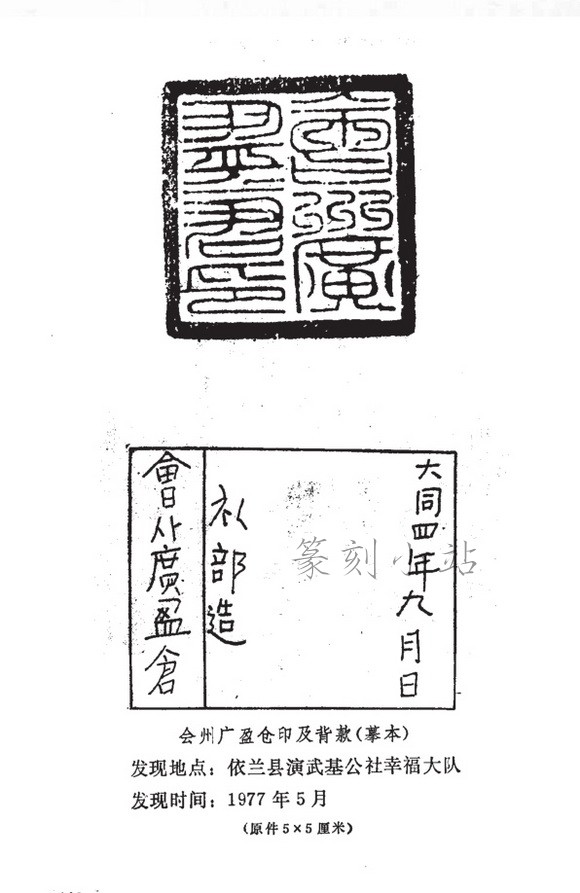 會州廣
盈倉印
大同四年九月日
礼部造
會州廣盈倉
篆刻小站
会州广盈仓印及背款(摹本)
发现地点：依兰县演武基公社幸福大队
发现时间：1977年5月
(原件5×5厘米)